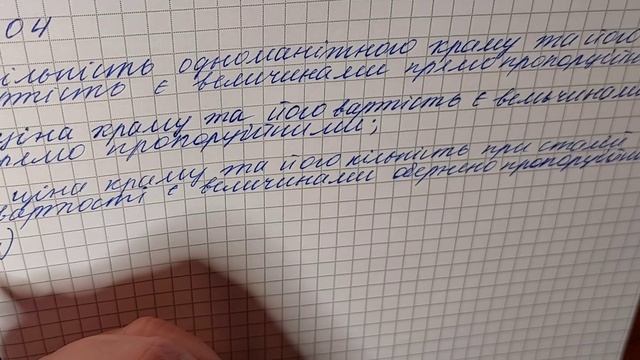 04
ількість одноманітного краму та його
ртість є величинами прямо пропорційн
ціна краму та його вартість є величинами
рямо пропорційними;
ціна краму та його кількість при сталей
вартості є величинами обернено пропорційн
)